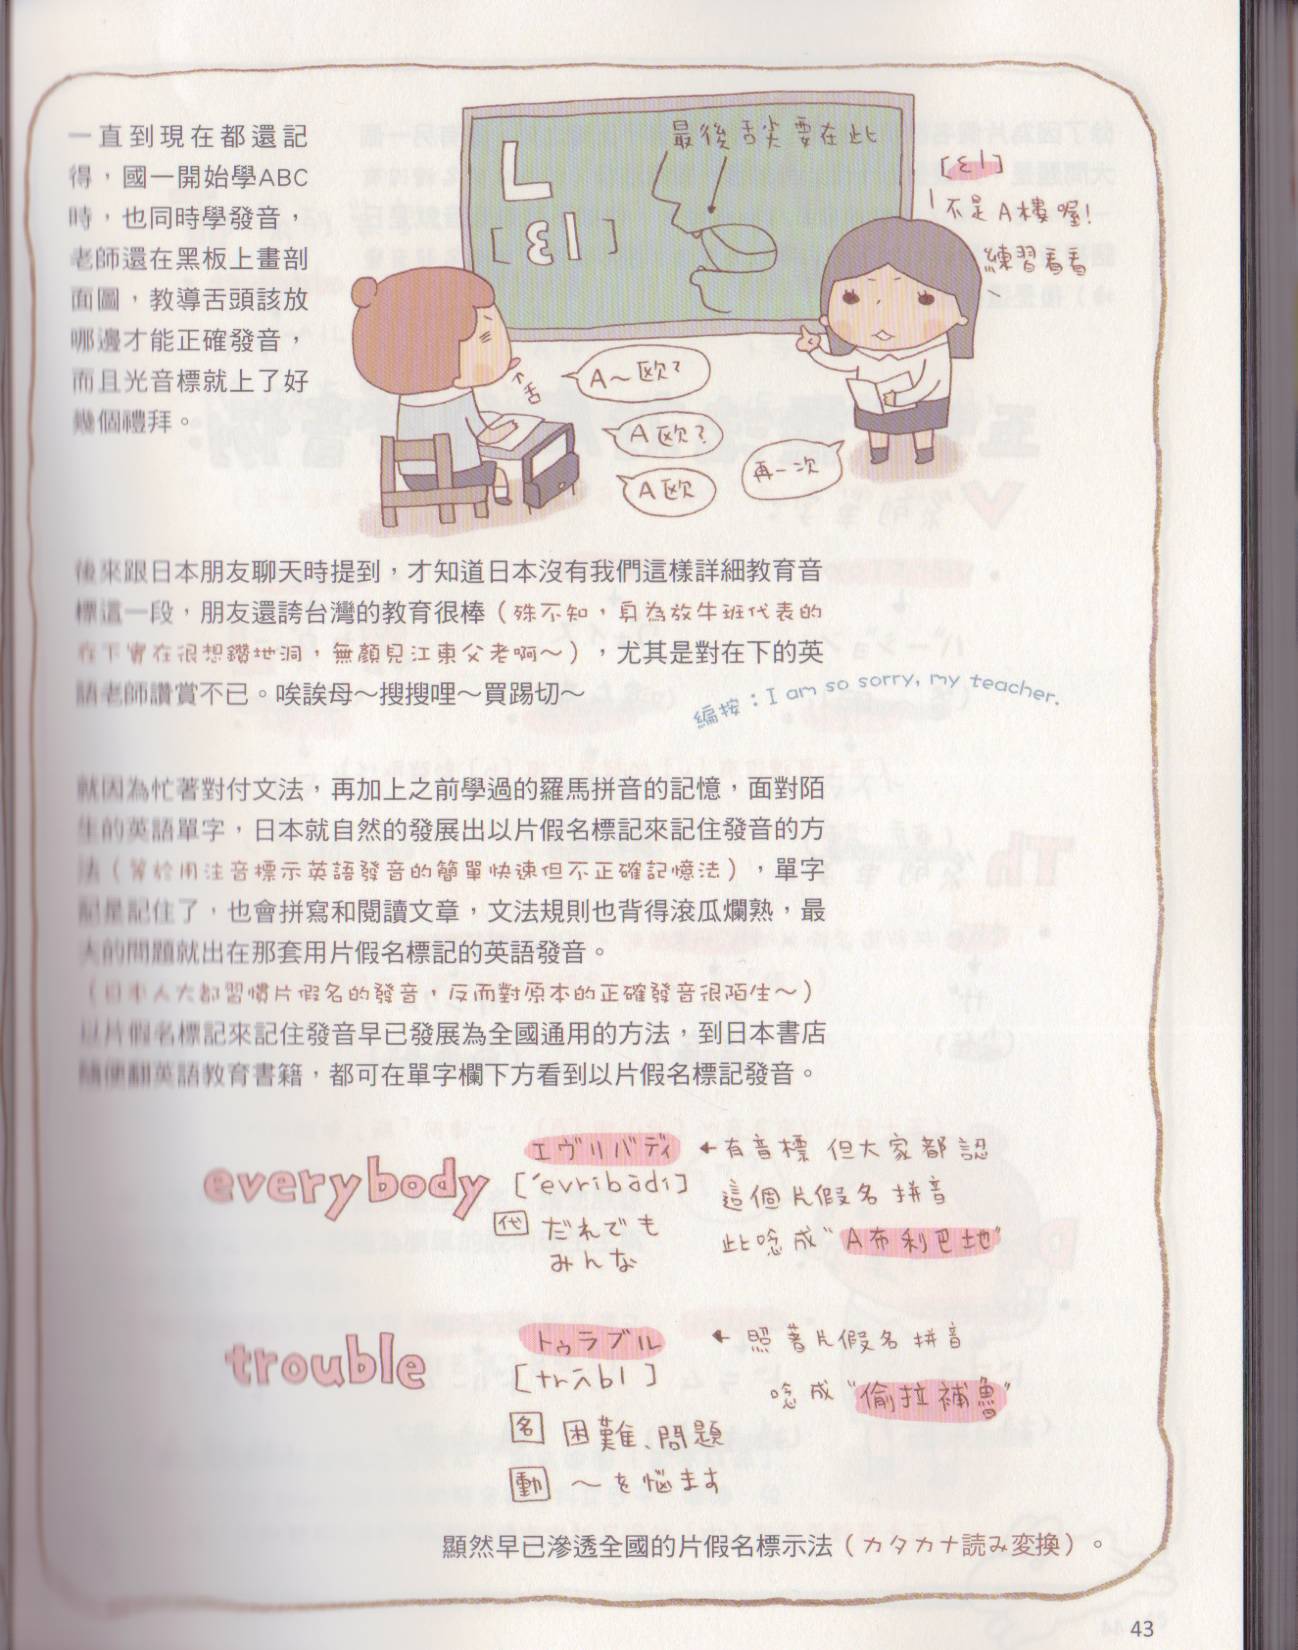 一直到現在都還記
得，國一開始學ABC
時，也同時學發音，
老師還在黑板上畫剖
面圖，教導舌頭該放
哪邊才能正確發音，
而且光音標就上了好
幾個禮拜。
L
[ɛl]
最後舌尖要在此
[ɛl]
不是A樓喔！
練習看看
A～歐？
A歐？
A歐
再一次
後來跟日本朋友聊天時提到，才知道日本沒有我們這樣詳細教育音
標這一段，朋友還誇台灣的教育很棒（殊不知，身為放牛班代表的
在下實在很想鑽地洞，無顏見江東父老啊～），尤其是對在下的英
語老師讚賞不已。唉誒母～搜搜哩～買踢切～
編按：I am so sorry, my teacher.
就因為忙著對付文法，再加上之前學過的羅馬拼音的記憶，面對陌
生的英語單字，日本就自然的發展出以片假名標記來記住發音的方
法（等於用注音標示英語發音的簡單快速但不正確記憶法），單字
記是記住了，也會拼寫和閱讀文章，文法規則也背得滾瓜爛熟，最
大的問題就出在那套用片假名標記的英語發音。
（日本人大都習慣片假名的發音，反而對原本的正確發音很陌生～）
以片假名標記來記住發音早已發展為全國通用的方法，到日本書店
隨便翻英語教育書籍，都可在單字欄下方看到以片假名標記發音。
everybody
エヴリバディ
[ˊevribàdı]
代 だれでも
みんな
←有音標 但大家都認
這個片假名拼音
此唸成"A布利巴地"
trouble
トゥラブル
[trʌbl]
名 困難、問題
動 ～を悩ます
←照著片假名拼音
唸成"偷拉補魯"
顯然早已滲透全國的片假名標示法（カタカナ読み変換）。
43